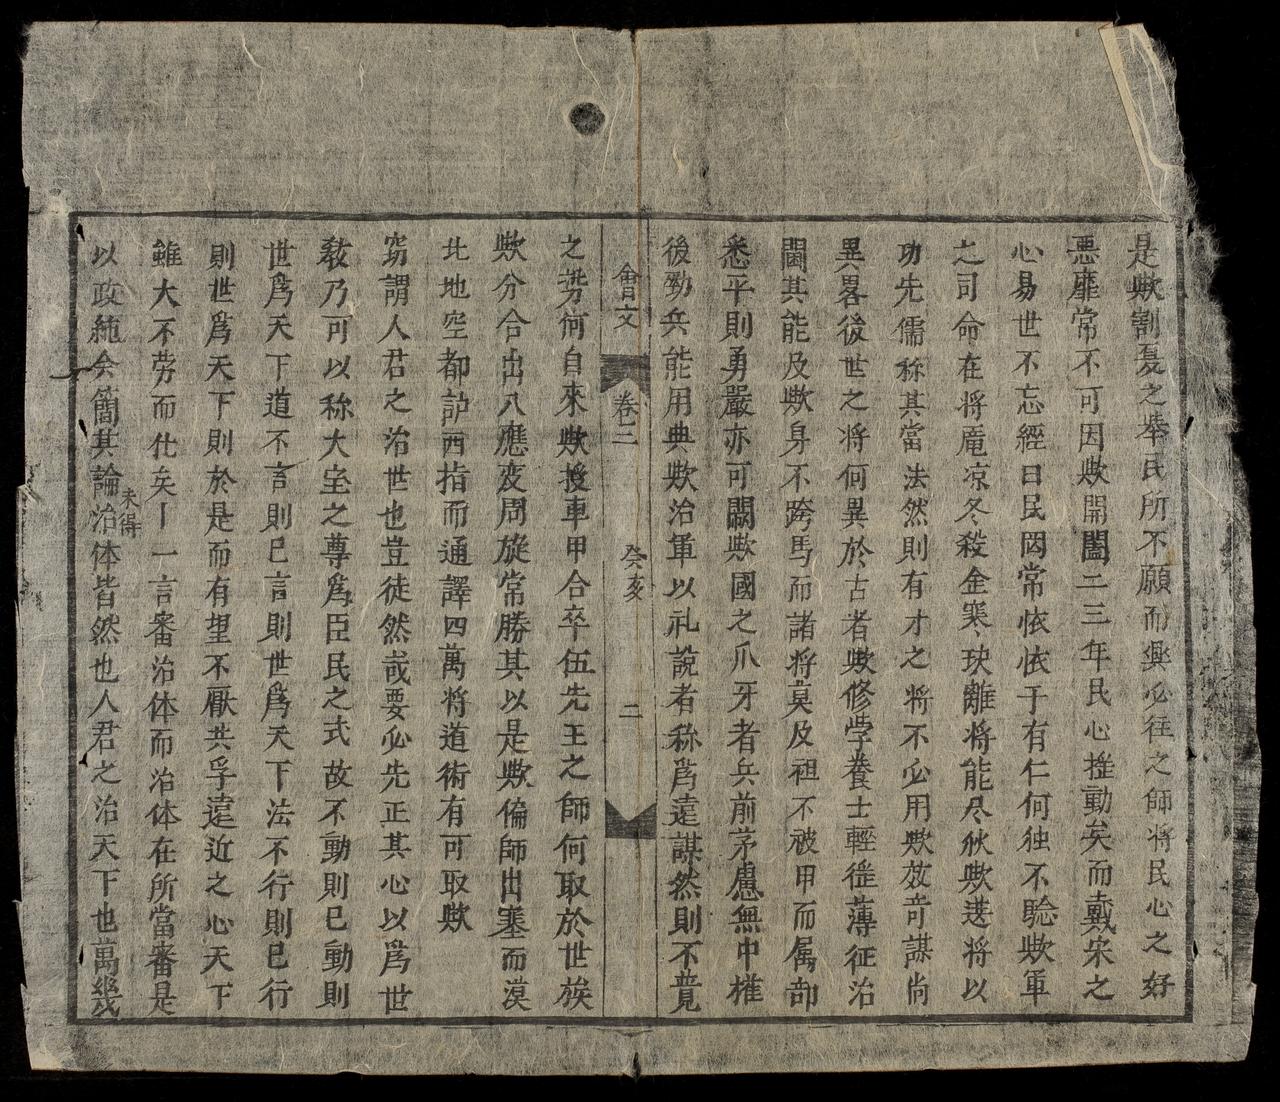 是歟割夏之舉民所不願而興必往之師將民心之好
惡靡常不可因歟開闔二三年民心推動矣而戴宋之
心易世不忘經曰民罔常依依于有仁何独不騐歟軍
之司命在将庵凉冬殺金寒玦離将能尽狀歟選将以
功先儒称其當法然則有才之将不必用歟效奇謀尚
異畧後世之将何異於古者歟修学養士輕徭薄征治
閫其能及歟身不跨馬而諸将莫及祖不被甲而属部
悉平則勇嚴亦可闕歟國之爪牙者兵前茅慮無中權
後勁兵能用典歟治軍以礼説者称為遠謀然則不竟
會文 卷二 癸亥 二
之勞何自來歟授車甲合卒伍先王之師何取於世族
歟分合出入應変周旋常勝其以是歟偏師出塞而漠
北地空都護西指而通譯四萬将道術有可取歟
窃謂人君之治世也豈徒然㢤要必先正其心以為世
教乃可以称大宝之尊為臣民之式故不動則已動則
世為天下道不言則已言則世為天下法不行則已行
則世為天下則於是而有望不厭共孚遠近之心天下
雖大不劳而化矣丨一言審治体而治体在所當審是
以政純会簡其論治体皆然也人君之治天下也萬幾
未得